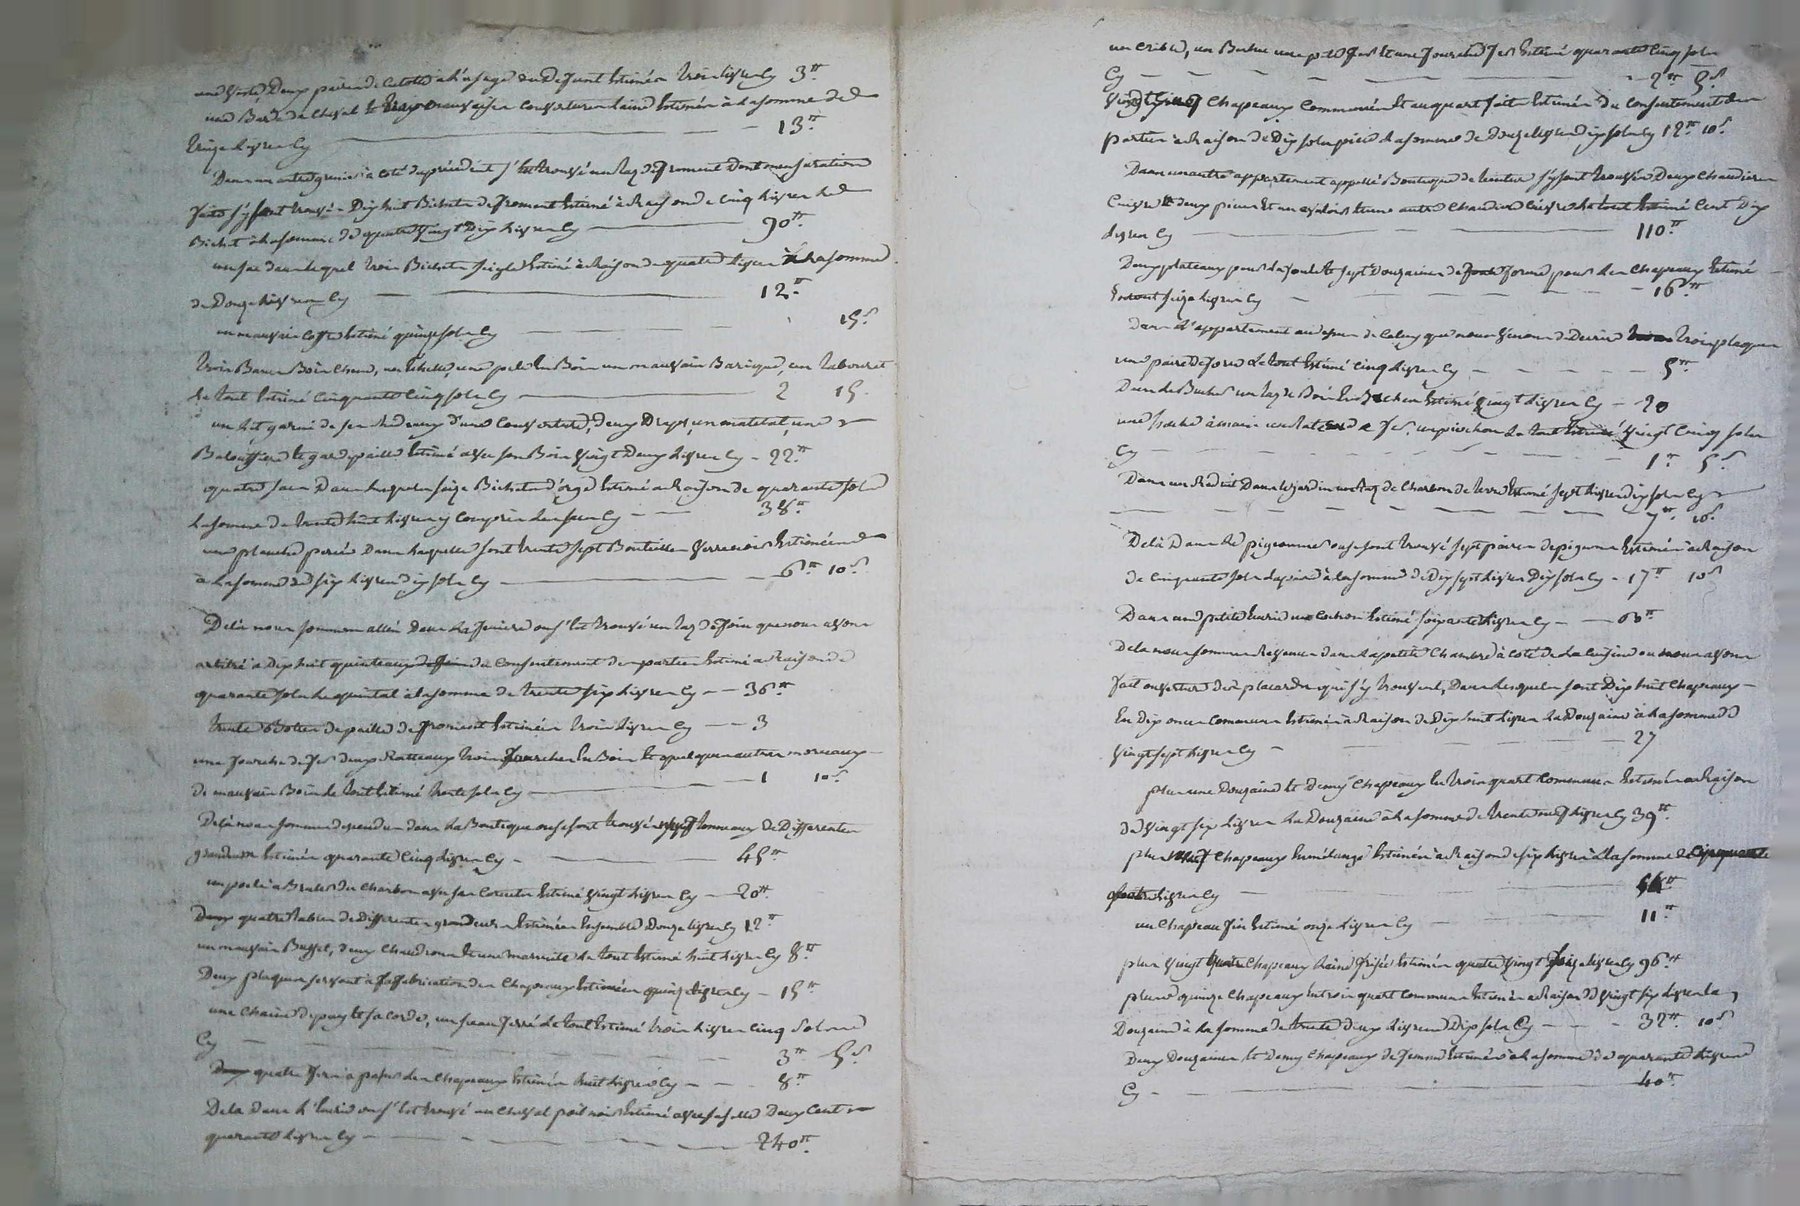 une veste, Deux paires de culotte à l'usage du Defunt Estimés trois livres Cy 3tt
une Barde de cheval et mauvaises couvertures laine Estimés à la somme de
treize livres Cy 13tt
Dans un autre grenier à coté du précédent s'est trouvé un taz de froment Dont mensuration
faite s'y sont trouvé Dix huit Bichets de froment Estimé à Raison de Cinq livres le
Bichet à la somme de quatre vingt Dix livres Cy 90tt
un sac dans lequel trois Bichets seigle Estimé à Raison de quatre livres à la somme
de Douze livres Cy 12tt
un mauvais coffre Estimé quinze sols Cy 15s
trois Bancs Bois chene, une Echelle, une pele En Bois un mauvais Barique, un tabouret
le tout Estimé Cinquante Cinq sols Cy 2 15
un lit garni de ses Rideaux d'une Couverture, deux Draps, un matelat, une
Balouffiere et gardepaille Estimé avec son Bois vingt Deux livres Cy 22tt
quatre sacs Dans lesquels seize Bichets d'orge Estimé à Raison de quarante sols
la somme de trente huit livres y compris les sacs Cy 38tt
une planche percée Dans laquelle sont trente sept Bouteilles verre noir Estimées
à la somme de six livres dix sols Cy 6tt 10s
Delà nous sommes allés Dans la feniere ou s'est trouvé un taz de foin que nous avons
arbitré à Dix huit quinteaux du Consentement des parties Estimé à Raison de
quarante sols le quintal à la somme de trente six livres Cy 36tt
trente Bottes de paille de froment Estimées trois livres Cy 3
une fourche de fer deux Ratteaux trois fourches En Bois Et quelques autres morceaux
de mauvais Bois le tout Estimé trente sols Cy 1 10s
Delà nous sommes descendus dans la Boutique ou se sont trouvés tonneaux de Differentes
grandeurs Estimés quarante Cinq livres Cy 45tt
un poele à Bruler du charbon avec ses Cornets Estimé vingt livres Cy 20tt
quatre tables de differentes grandeurs Estimées Ensemble Douze livres Cy 12tt
un mauvais Buffet, deux chaudrons Et une marmite le tout Estimé huit livres Cy 8tt
Deux plaques servant à la fabrication des Chapeaux Estimées quinze livres Cy 15tt
une chaine de puy et sa corde, un seau ferré le tout Estimé trois livres cinq sols
Cy 3tt 5s
quatre fers à passer les Chapeaux Estimés huit livres Cy 8tt
Delà dans l'Ecurie ou s'est trouvé un cheval poil noir Estimé avec sa selle Deux Cent
quarante livres Cy 240tt
un crible, un Et une fourche fer Estimé quarante Cinq sols
Cy 2tt 5s
vingt cinq Chapeaux Communs Et au quart fait Estimés du Consentement des
parties à Raison de Dix sols piece la somme de Douze livres dix sols Cy 12tt 10s
Dans un autre appartement appellé Boutique de teinture s'y sont trouvés Deux chaudieres
Cuivre deux pieces Et un Et une autre chaudiere Cuivre le tout Estimé Cent Dix
livres Cy 110tt
Deux plateaux pour la foule Et sept Douzaines de forme pour les Chapeaux Estimé
le tout seize livres Cy 16tt
dans l'appartement au dessus de Celuy que nous venons de Decrire trois plaques
une paire de force le tout Estimé Cinq livres Cy 5tt
Dans le Bucher un taz de Bois En Buches Estimé vingt livres Cy 20
une hache à main un Rateau de fer, un piochon le tout Estimé vingt Cinq sols
Cy 1tt 5s
Dans un Reduit Dans le jardin un taz de Charbon de terre Estimé sept livres dix sols Cy
7tt 10s
Delà Dans le pigeonnier ou se sont trouvé sept paires de pigeons Estimées à Raison
de Cinquante sols la paire à la somme de Dix sept livres Dix sols Cy 17tt 10s
Dans une petite Ecurie un Cochon Estimé soixante livres Cy 60tt
Delà nous sommes Revenus dans la petite Chambre à coté de la Cuisine ou nous avons
fait ouverture des placards qui s'y trouvent, Dans lesquels sont Dix huit Chapeaux
En Dix onces Communs Estimés à Raison de Dix huit livres la Douzaine à la somme de
vingt sept livres Cy 27
plus une Douzaine Et Demy Chapeaux En trois quart Communs Estimés à Raison
de vingt six livres la Douzaine à la somme de trente neuf livres Cy 39tt
plus neuf Chapeaux Demélangé Estimés à Raison de six livres à la somme de Cinquante
quatre livres Cy 54tt
un Chapeau fin Estimé onze livres Cy 11tt
plus vingt quatre Chapeaux laine frisée Estimés quatre vingt seize livres Cy 96tt
plus quinze Chapeaux En trois quart Communs Estimés à Raison de vingt six livres la
Douzaine à la somme de trente deux livres Dix sols Cy 32tt 10s
Deux Douzaines Et Demy Chapeaux de femme Estimés à la somme de quarante livres
Cy 40tt